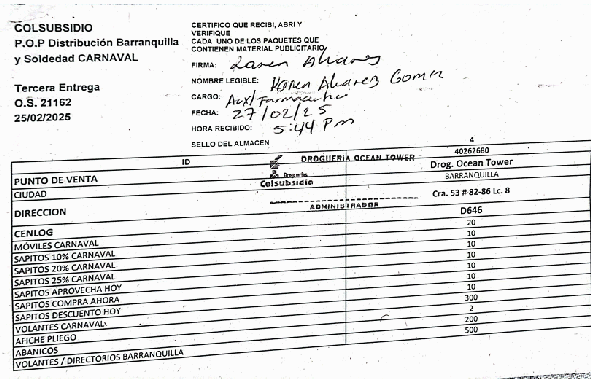 COLSUBSIDIO
P.O.P Distribución Barranquilla
y Soldedad CARNAVAL
Tercera Entrega
O.S. 21162
25/02/2025
CERTIFICO QUE RECIBI, ABRI Y
VERIFIQUE
CADA UNO DE LOS PAQUETES QUE
CONTIENEN MATERIAL PUBLICITARIO
FIRMA: Karen Alvarez
NOMBRE LEGIBLE: Karen Alvarez Gomez
CARGO: Aux/Farmaceutica
FECHA: 27/02/25
HORA RECIBIDO: 5:44 Pm
SELLO DEL ALMACEN
DROGUERIA OCEAN TOWER
Droguerías
Colsubsidio
ADMINISTRADOR
4
ID 40267680
PUNTO DE VENTA Drog. Ocean Tower
CIUDAD BARRANQUILLA
DIRECCION Cra. 53 # 82-86 Lc. 8
CENLOG D646
MÓVILES CARNAVAL 20
SAPITOS 10% CARNAVAL 10
SAPITOS 20% CARNAVAL 10
SAPITOS 25% CARNAVAL 10
SAPITOS APROVECHA HOY 10
SAPITOS COMPRA AHORA 10
SAPITOS DESCUENTO HOY 10
VOLANTES CARNAVAL 300
AFICHE PLIEGO 2
ABANICOS 200
VOLANTES / DIRECTORIOS BARRANQUILLA 500